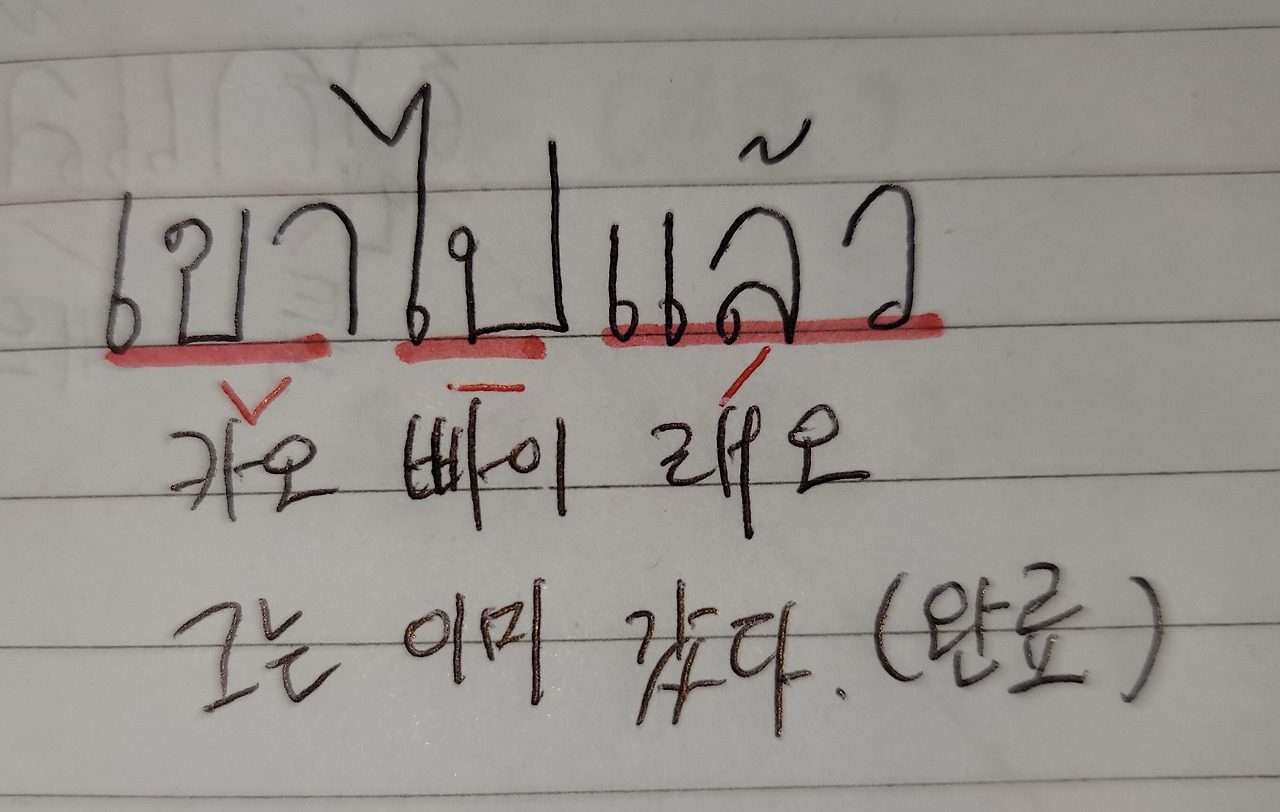 เขาไปแล้ว
카오 빠이 래오
그는 이미 갔다. (완료)